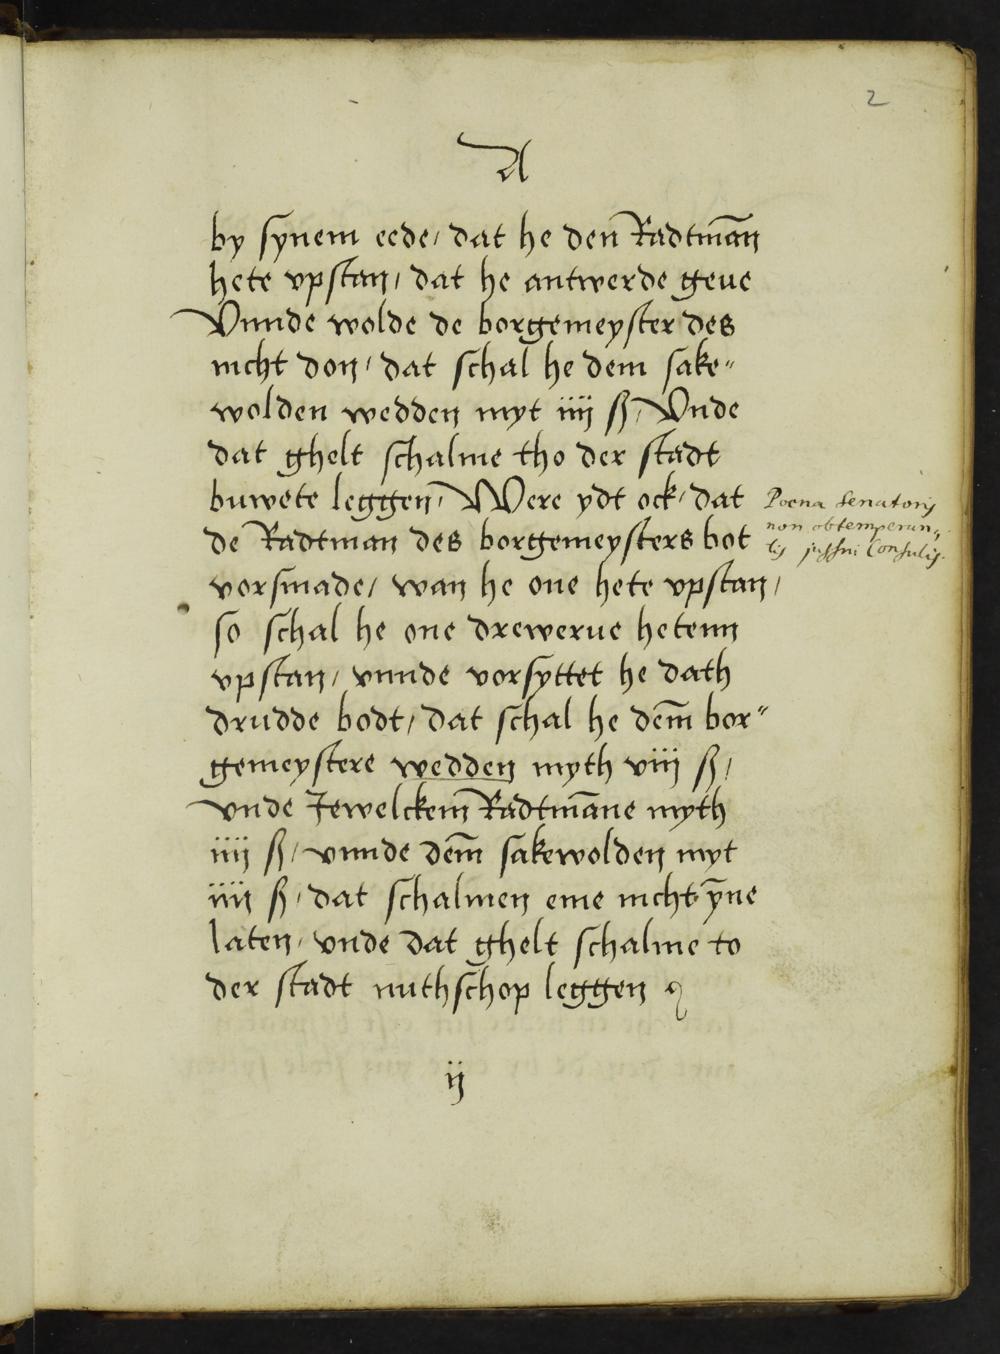 2
A
by synem eede / dat he den Radtman̄
hete vpstan / dat he antwerde geue
Vnnde wolde de borgemeyster des
nicht don / dat schal he dem sake"
wolden wedden myt iiij ß / Vnde
dat ghelt schalme tho der stadt
buwete leggen / Were ydt ock / dat
de Radtman des borgemeysters bot
vorsmade / wan he one hete vpstan /
so schal he one drewerue hetenn
vpstan / vnnde vorsyttet he dath
drudde bodt / dat schal he dem̄ bor"
gemeystere wedden myth viij ß /
vnde Jewelckem̄ Radtmāne myth
iiij ß / vnnde dem̄ sakewolden myt
iiij ß / dat schalmen eme nicht ȳne
laten / vnde dat ghelt schalme to
der stadt nuthschop leggen
Poena Senatoris
non obtemperan„
tis jussui Consulis.
ij